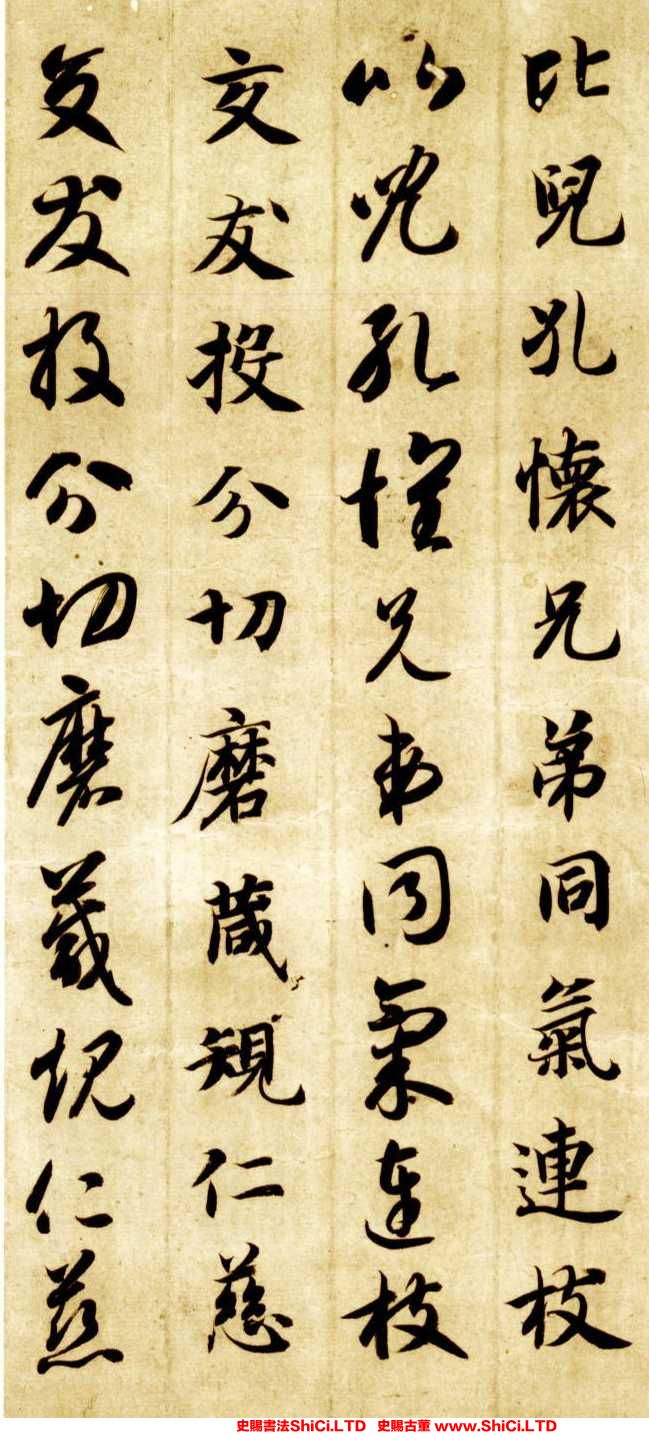 比兒孔懷兄弟同氣連枝
比兒孔懷兄弟同氣連枝
交友投分切磨葴規仁慈
交友投分切磨葴規仁慈
史賜書法ShiCi.LTD 史賜古董 www.ShiCi.LTD